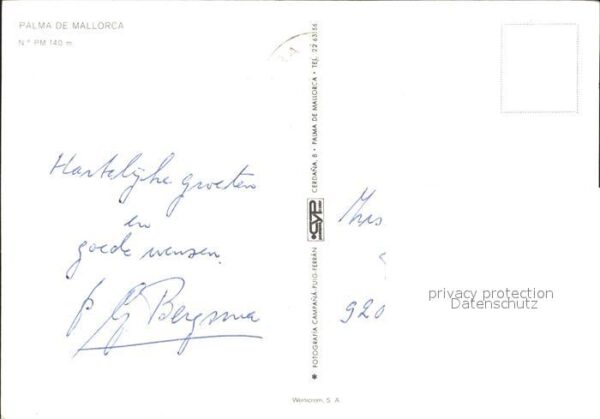 PALMA DE MALLORCA
N.º PM 140 m.
Hartelijke groeten
en
goede wensen.
Bergsma
FOTOGRAFIA CAMPAÑÁ-PUIG-FERRÁN
CYP
CERDAÑA, 8 • PALMA DE MALLORCA • TEL. 22 63 56
Mrs
920
privacy protection
Datenschutz
Wornicrom, S. A.